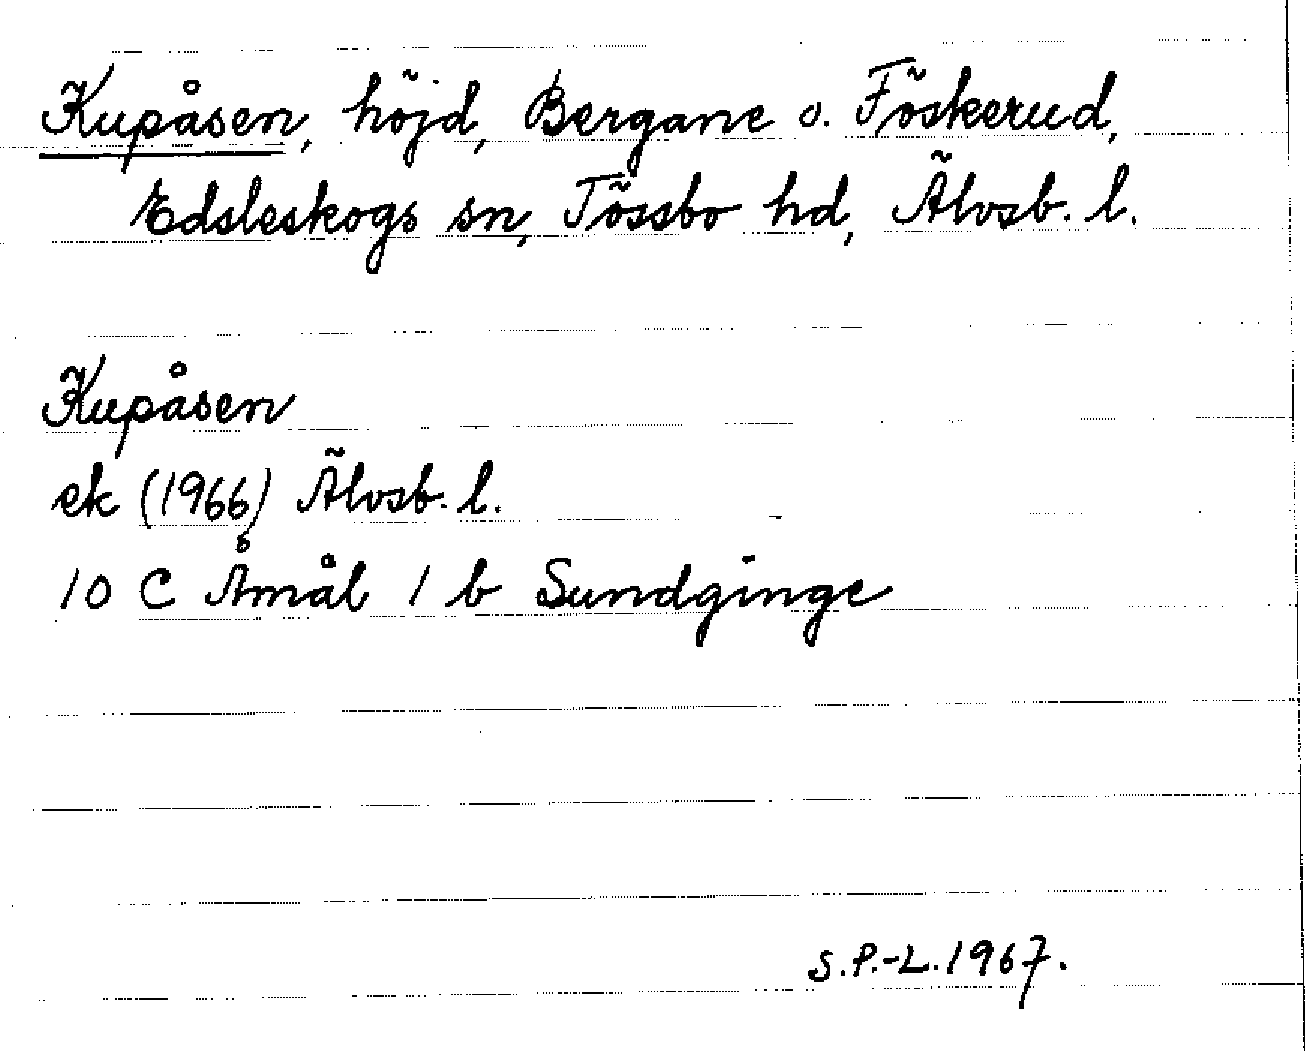 Kupåsen, höjd, Bergane o. Föskerud,
Edsleskogs sn, Tössbo hd, Älvsb. l.
Kupåsen
ek (1966) Älvsb. l.
10 C Åmål 1 b Sundginge
S.P.-L. 1967.